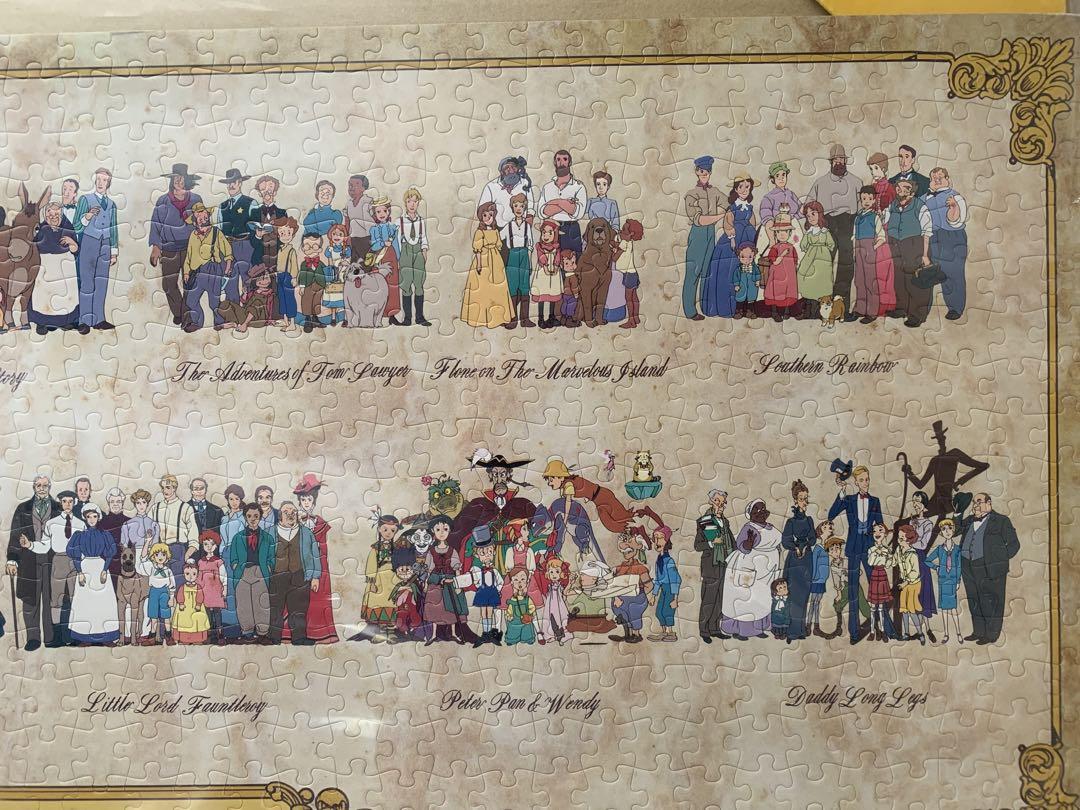 tory
The Adventures of Tom Sawyer
Flone on The Marvelous Island
Southern Rainbow
Little Lord Fauntleroy
Peter Pan & Wendy
Daddy Long Legs